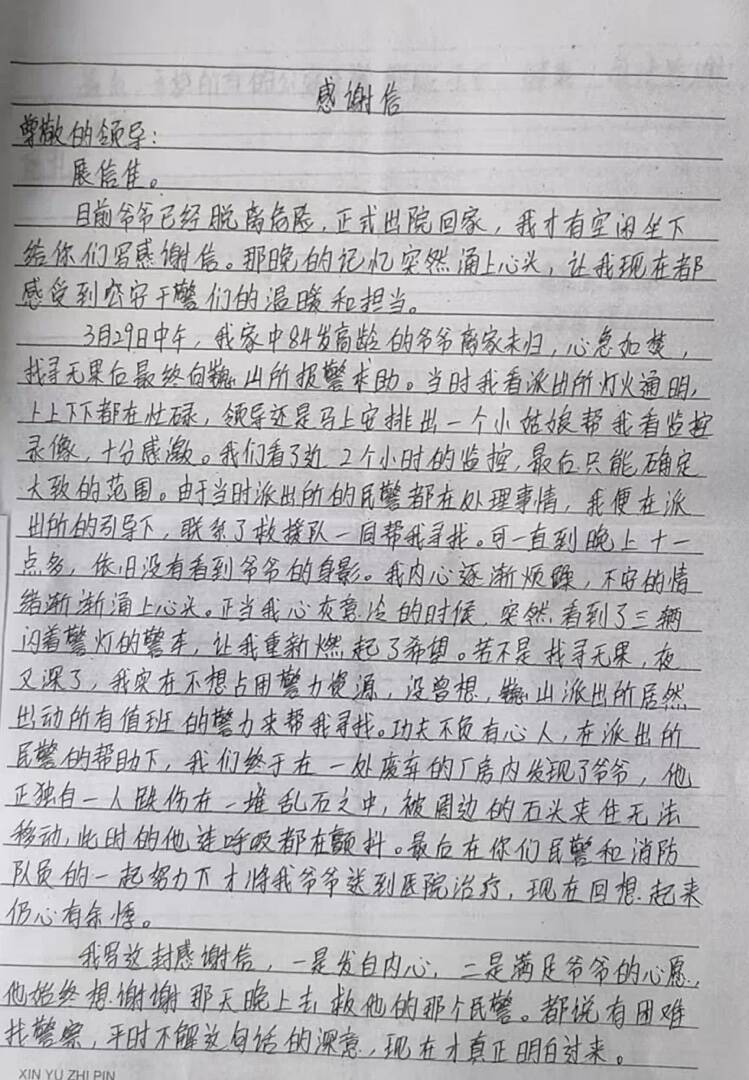 感谢信
尊敬的领导：
展信佳。
目前爷爷已经脱离危险，正式出院回家，我才有空闲坐下
给你们写感谢信。那晚的记忆突然涌上心头，让我现在都
感受到公安干警们的温暖和担当。
3月29日中午，我家中84岁高龄的爷爷离家未归，心急如焚，
找寻无果后最终向山所报警求助。当时我看派出所灯火通明，
上上下下都在忙碌，领导还是马上安排出一个小姑娘帮我看监控
录像，十分感激。我们看了近2个小时的监控，最后只能确定
大致的范围。由于当时派出所的民警都在处理事情，我便在派
出所的引导下，联系了救援队一同帮我寻找。可一直到晚上十一
点多，依旧没有看到爷爷的身影。我内心逐渐烦躁，不安的情
绪渐渐涌上心头。正当我心灰意冷的时候，突然看到了三辆
闪着警灯的警车，让我重新燃起了希望。若不是找寻无果，夜
又深了，我实在不想占用警力资源，没曾想，山派出所居然
出动所有值班的警力来帮我寻找。功夫不负有心人，在派出所
民警的帮助下，我们终于在一处废弃的厂房内发现了爷爷，他
正独自一人跌伤在一堆乱石之中，被周边的石头夹住无法
移动，此时的他连呼吸都在颤抖。最后在你们民警和消防
队员的一起努力下才将我爷爷送到医院治疗，现在回想起来
仍心有余悸。
我写这封感谢信，一是发自内心，二是满足爷爷的心愿，
他始终想谢谢那天晚上去救他的那个民警。都说有困难
找警察，平时不解这句话的深意，现在才真正明白过来。
XIN YU ZHI PIN